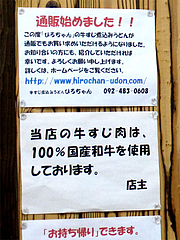 通販始めました！！
この度「ひろちゃん」の牛すじ煮込みうどんが
通販でもお買い求めいただけるようになりました。
お知り合いの方にも、紹介していただければ
幸いです。よろしくお願い申し上げます。
詳しくは、ホームページをご覧ください。
http://www.hirochan-udon.com/
牛すじ煮込みうどんひろちゃん 092-483-0608
当店の牛すじ肉は、
100%国産和牛を使用
しております。
店主
「お持ち帰り」できます。